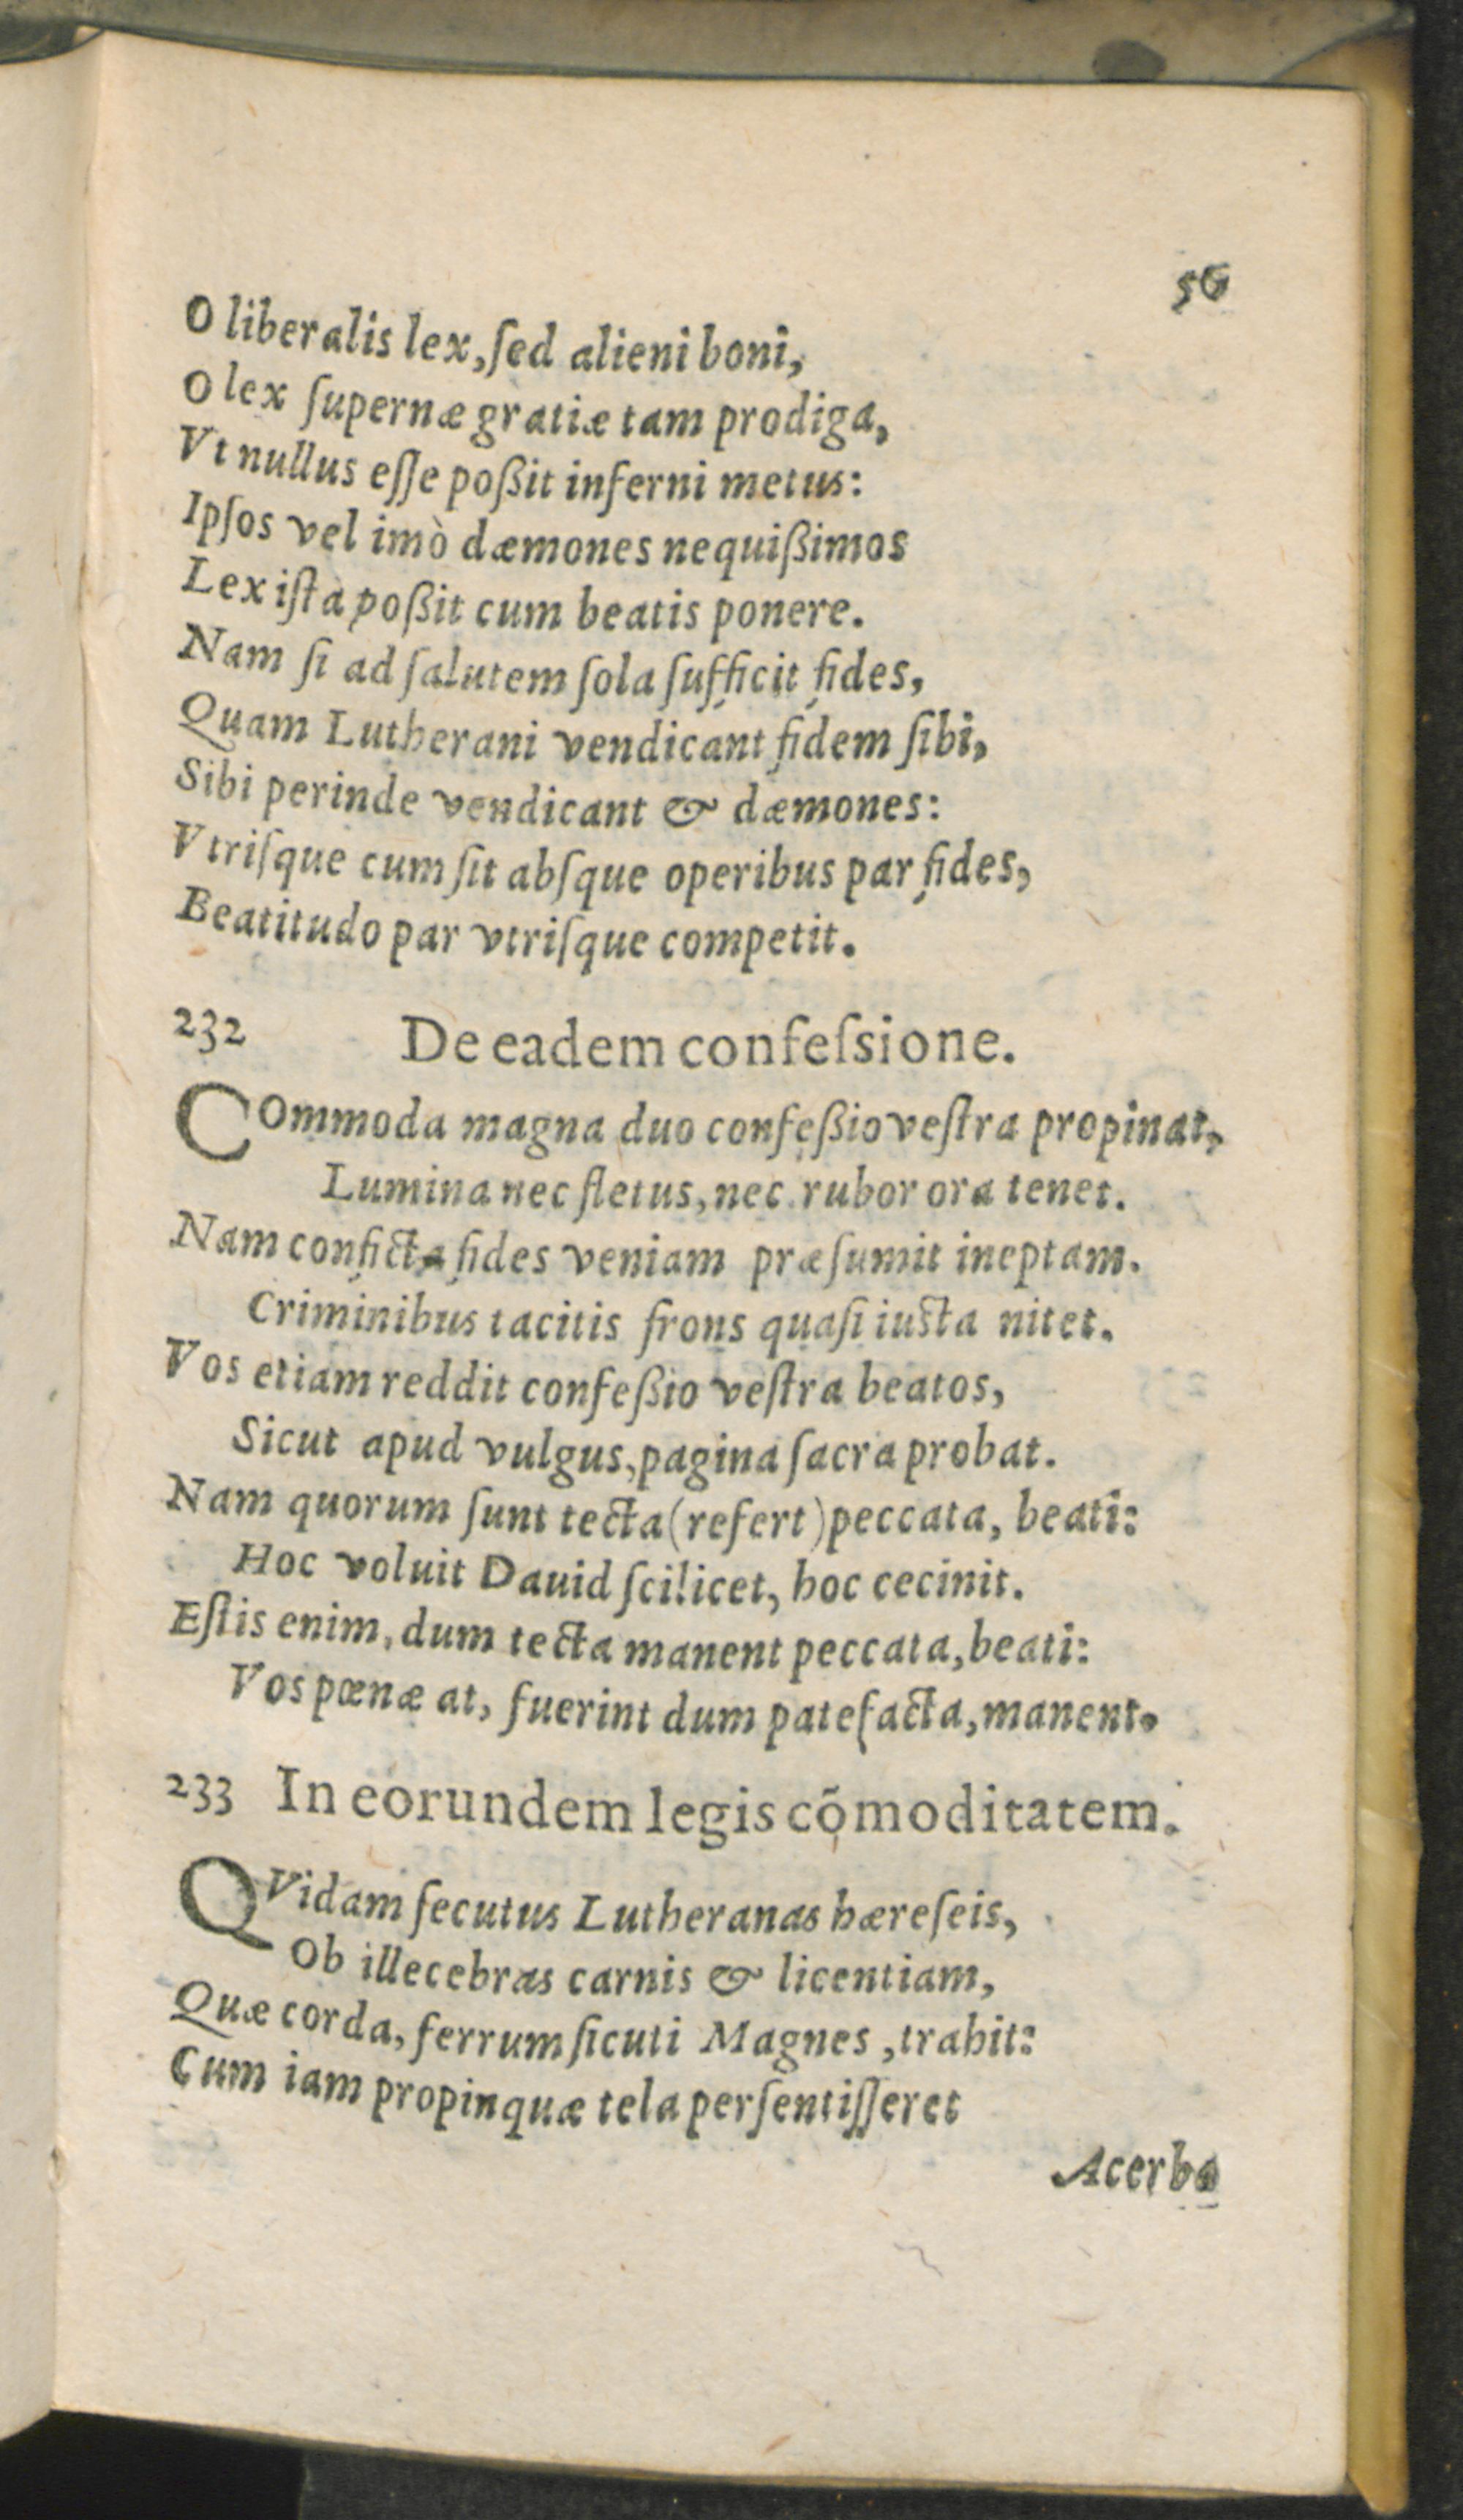 56
O liberalis lex, ſed alieni boni,
O lex ſupernæ gratiæ tam prodiga,
Vt nullus eſſe poßit inferni metus:
Ipſos vel imò dæmones nequißimos
Lex iſta poßit cum beatis ponere.
Nam ſi ad ſalutem ſola ſufficit fides,
Quam Lutherani vendicant fidem ſibi,
Sibi perinde vendicant & dæmones:
Vtriſque cum ſit abſque operibus par fides,
Beatitudo par vtriſque competit.
232 De eadem confeſsione.
COmmoda magna duo confeßio veſtra propinat,
Lumina nec fletus, nec rubor ora tenet.
Nam conficta fides veniam præſumit ineptam.
Criminibus tacitis frons quaſi iusta nitet.
Vos etiam reddit confeßio veſtra beatos,
Sicut apud vulgus, pagina ſacra probat.
Nam quorum ſunt tecta (refert) peccata, beati:
Hoc voluit Dauid ſcilicet, hoc cecinit.
Eſtis enim, dum tecta manent peccata, beati:
Vos pœnæ at, fuerint dum patefacta, manent.
233 In eorundem legis cõmoditatem.
QVidam ſecutus Lutheranas hæreſeis,
Ob illecebras carnis & licentiam,
Quæ corda, ferrum ſicuti Magnes, trahit:
Cum iam propinquæ tela perſentiſſeret
Acerba